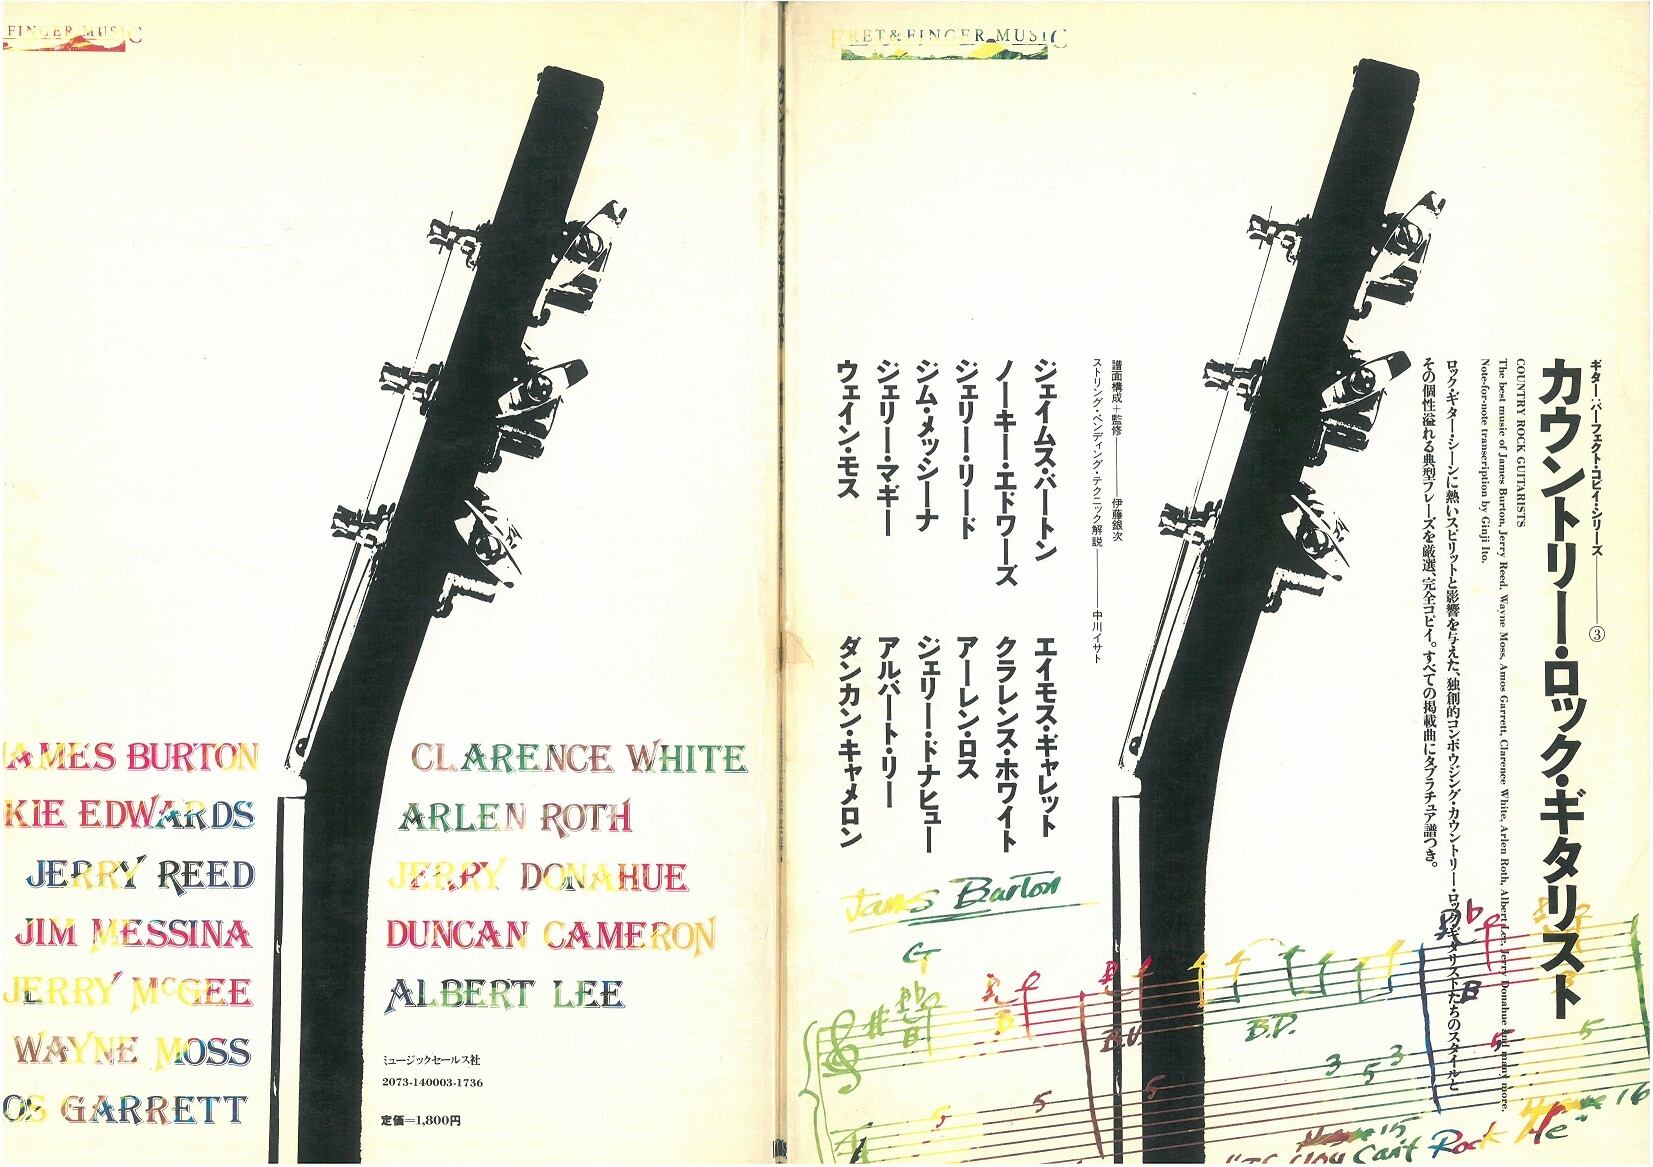 FINGER MUSIC
AMES BURTON
KIE EDWARDS
JERRY REED
JIM MESSINA
JERRY McGEE
WAYNE MOSS
OS GARRETT
CLARENCE WHITE
ARLEN ROTH
JERRY DONAHUE
DUNCAN CAMERON
ALBERT LEE
ミュージックセールス社
2073-140003-1736
定価=1,800円
FRET & FINGER MUSIC
ギター・パーフェクト・コピイ・シリーズ——③
カウントリー・ロック・ギタリスト
COUNTRY ROCK GUITARISTS
The best music of James Burton, Jerry Reed, Wayne Moss, Amos Garrett, Clarence White, Arlen Roth, Albert Lee, Jerry Donahue and many more.
Note-for-note transcription by Ginji Ito.
ロック・ギター・シーンに熱いスピリットと影響を与えた、独創的コンポウジング・カウントリー・ロック・ギタリストたちのスタイルと
その個性溢れる典型フレーズを厳選、完全コピイ。すべての掲載曲にタブラチュア譜つき。
譜面構成+監修——伊藤銀次
ストリング・ベンディング・テクニック解説——中川イサト
ジェイムス・バートン
ノーキー・エドワーズ
ジェリー・リード
ジム・メッシーナ
ジェリー・マギー
ウェイン・モス
エイモス・ギャレット
クラレンス・ホワイト
アーレン・ロス
ジェリー・ドナヒュー
アルバート・リー
ダンカン・キャメロン
James Burton
G
B
B.U.
B.D.
B
5 5 5 3 5 3 5 5
16
15
Can't Rock Me"